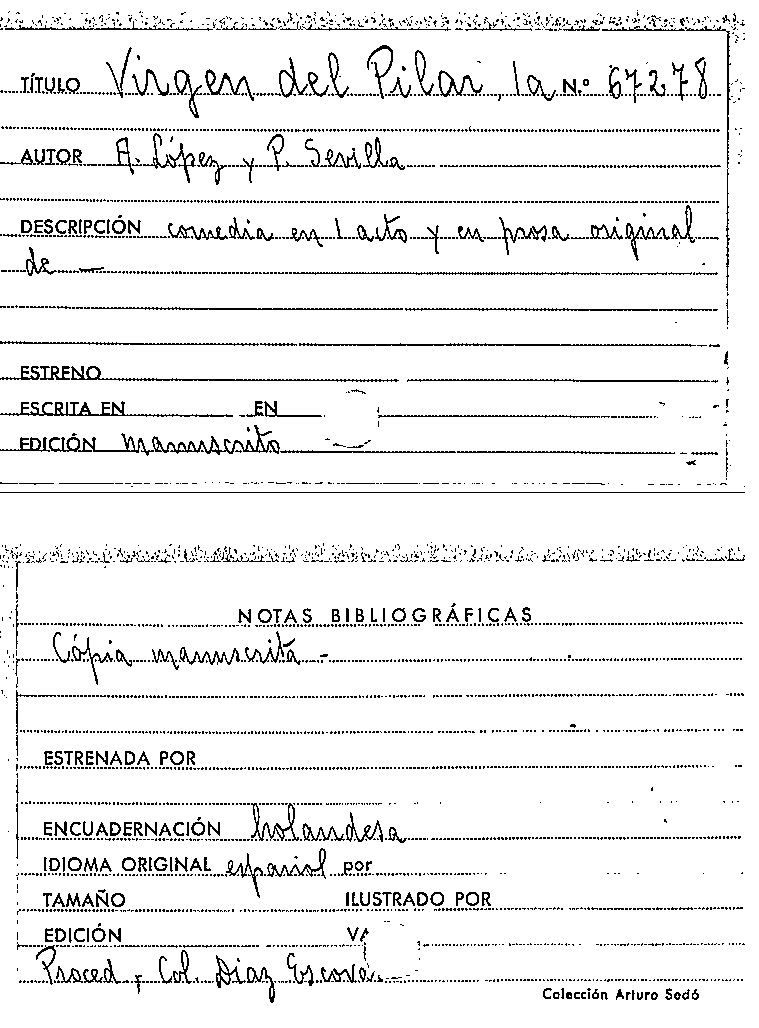 TÍTULO Virgen del Pilar, la N.º 67278
AUTOR A. López y P. Sevilla
DESCRIPCIÓN comedia en 1 acto y en prosa original
de —
ESTRENO
ESCRITA EN EN
EDICIÓN manuscrito
NOTAS BIBLIOGRÁFICAS
Cópia manuscrita -
ESTRENADA POR
ENCUADERNACIÓN holandesa
IDIOMA ORIGINAL español por
TAMAÑO ILUSTRADO POR
EDICIÓN
Proced, Col. Diaz
Colección Arturo Sedó